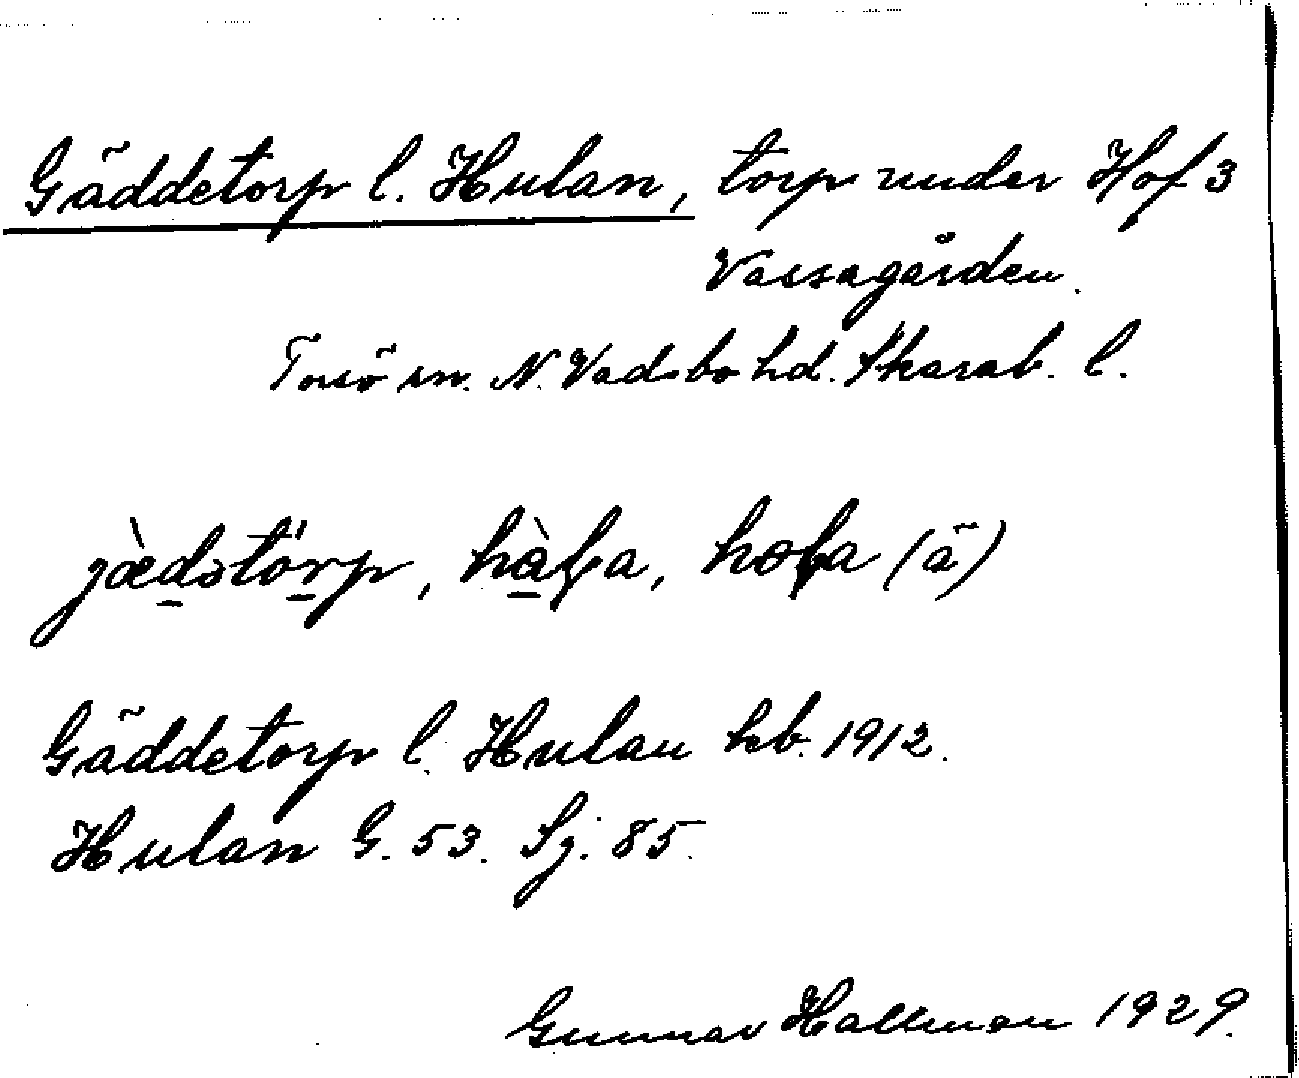 Gäddetorp l. Hulan, torp under Hof 3
Vassagården.
Torsö sn. N. Vadsbo hd. Skarab. l.
Gäddetorp l. Hulan hb. 1912.
Hulan G. 53. Sj. 85.
Gunnar Hallman 1929.